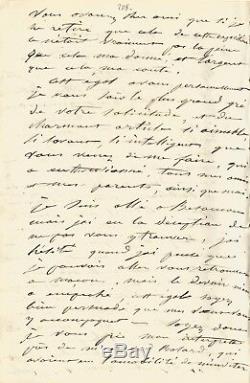 208.
Vous savez, cher ami que si je
ne retire que cela de cette
ce n'était vraiment pas la peine
que cela m'a donné, et l'argent
que cela m'a coûté.
A cet égard vous personnellement
je vous sais le plus grand gré
de votre sollicitude, et du
charmant article si aimable
si savant, si intelligent que
vous venez de me faire, qui
a enthousiasmé, tous mes amis
et mes parents, ainsi que moi
je suis allé à Besançon
mais j'ai eu la déception de
ne pas vous y trouver, j'ai
hésité quand j'ai pensé que
je pouvais aller vous retrouver
à mais le devoir m'en
a empêché, à cet égard soyez
bien persuadé que
accompagnent soyez donc
je vous prie mon interprète
près de
avaient eu l'amabilité de